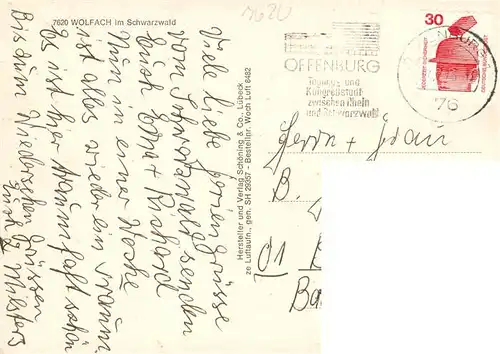 7620 WOLFACH im Schwarzwald
7620
Viele liebe Feriengrüsse
vom Schwarzwald senden
Euch Erna + Richard
Nun in einer Woche
ist alles wieder ein Traum.
Es ist hier traumhaft schön
Bis zum Wiedersehen Grüssen
Euch
Hersteller und Verlag Schöning & Co., Lübeck
ze Luftaufn., gen. SH 29357 - Bestellnr. Woch Luft 6482
OFFENBURG
Tagungs- und
Kongreßstadt
zwischen Rhein
und Schwarzwald
76
30
Herrn + Frau
B.
01
Ba